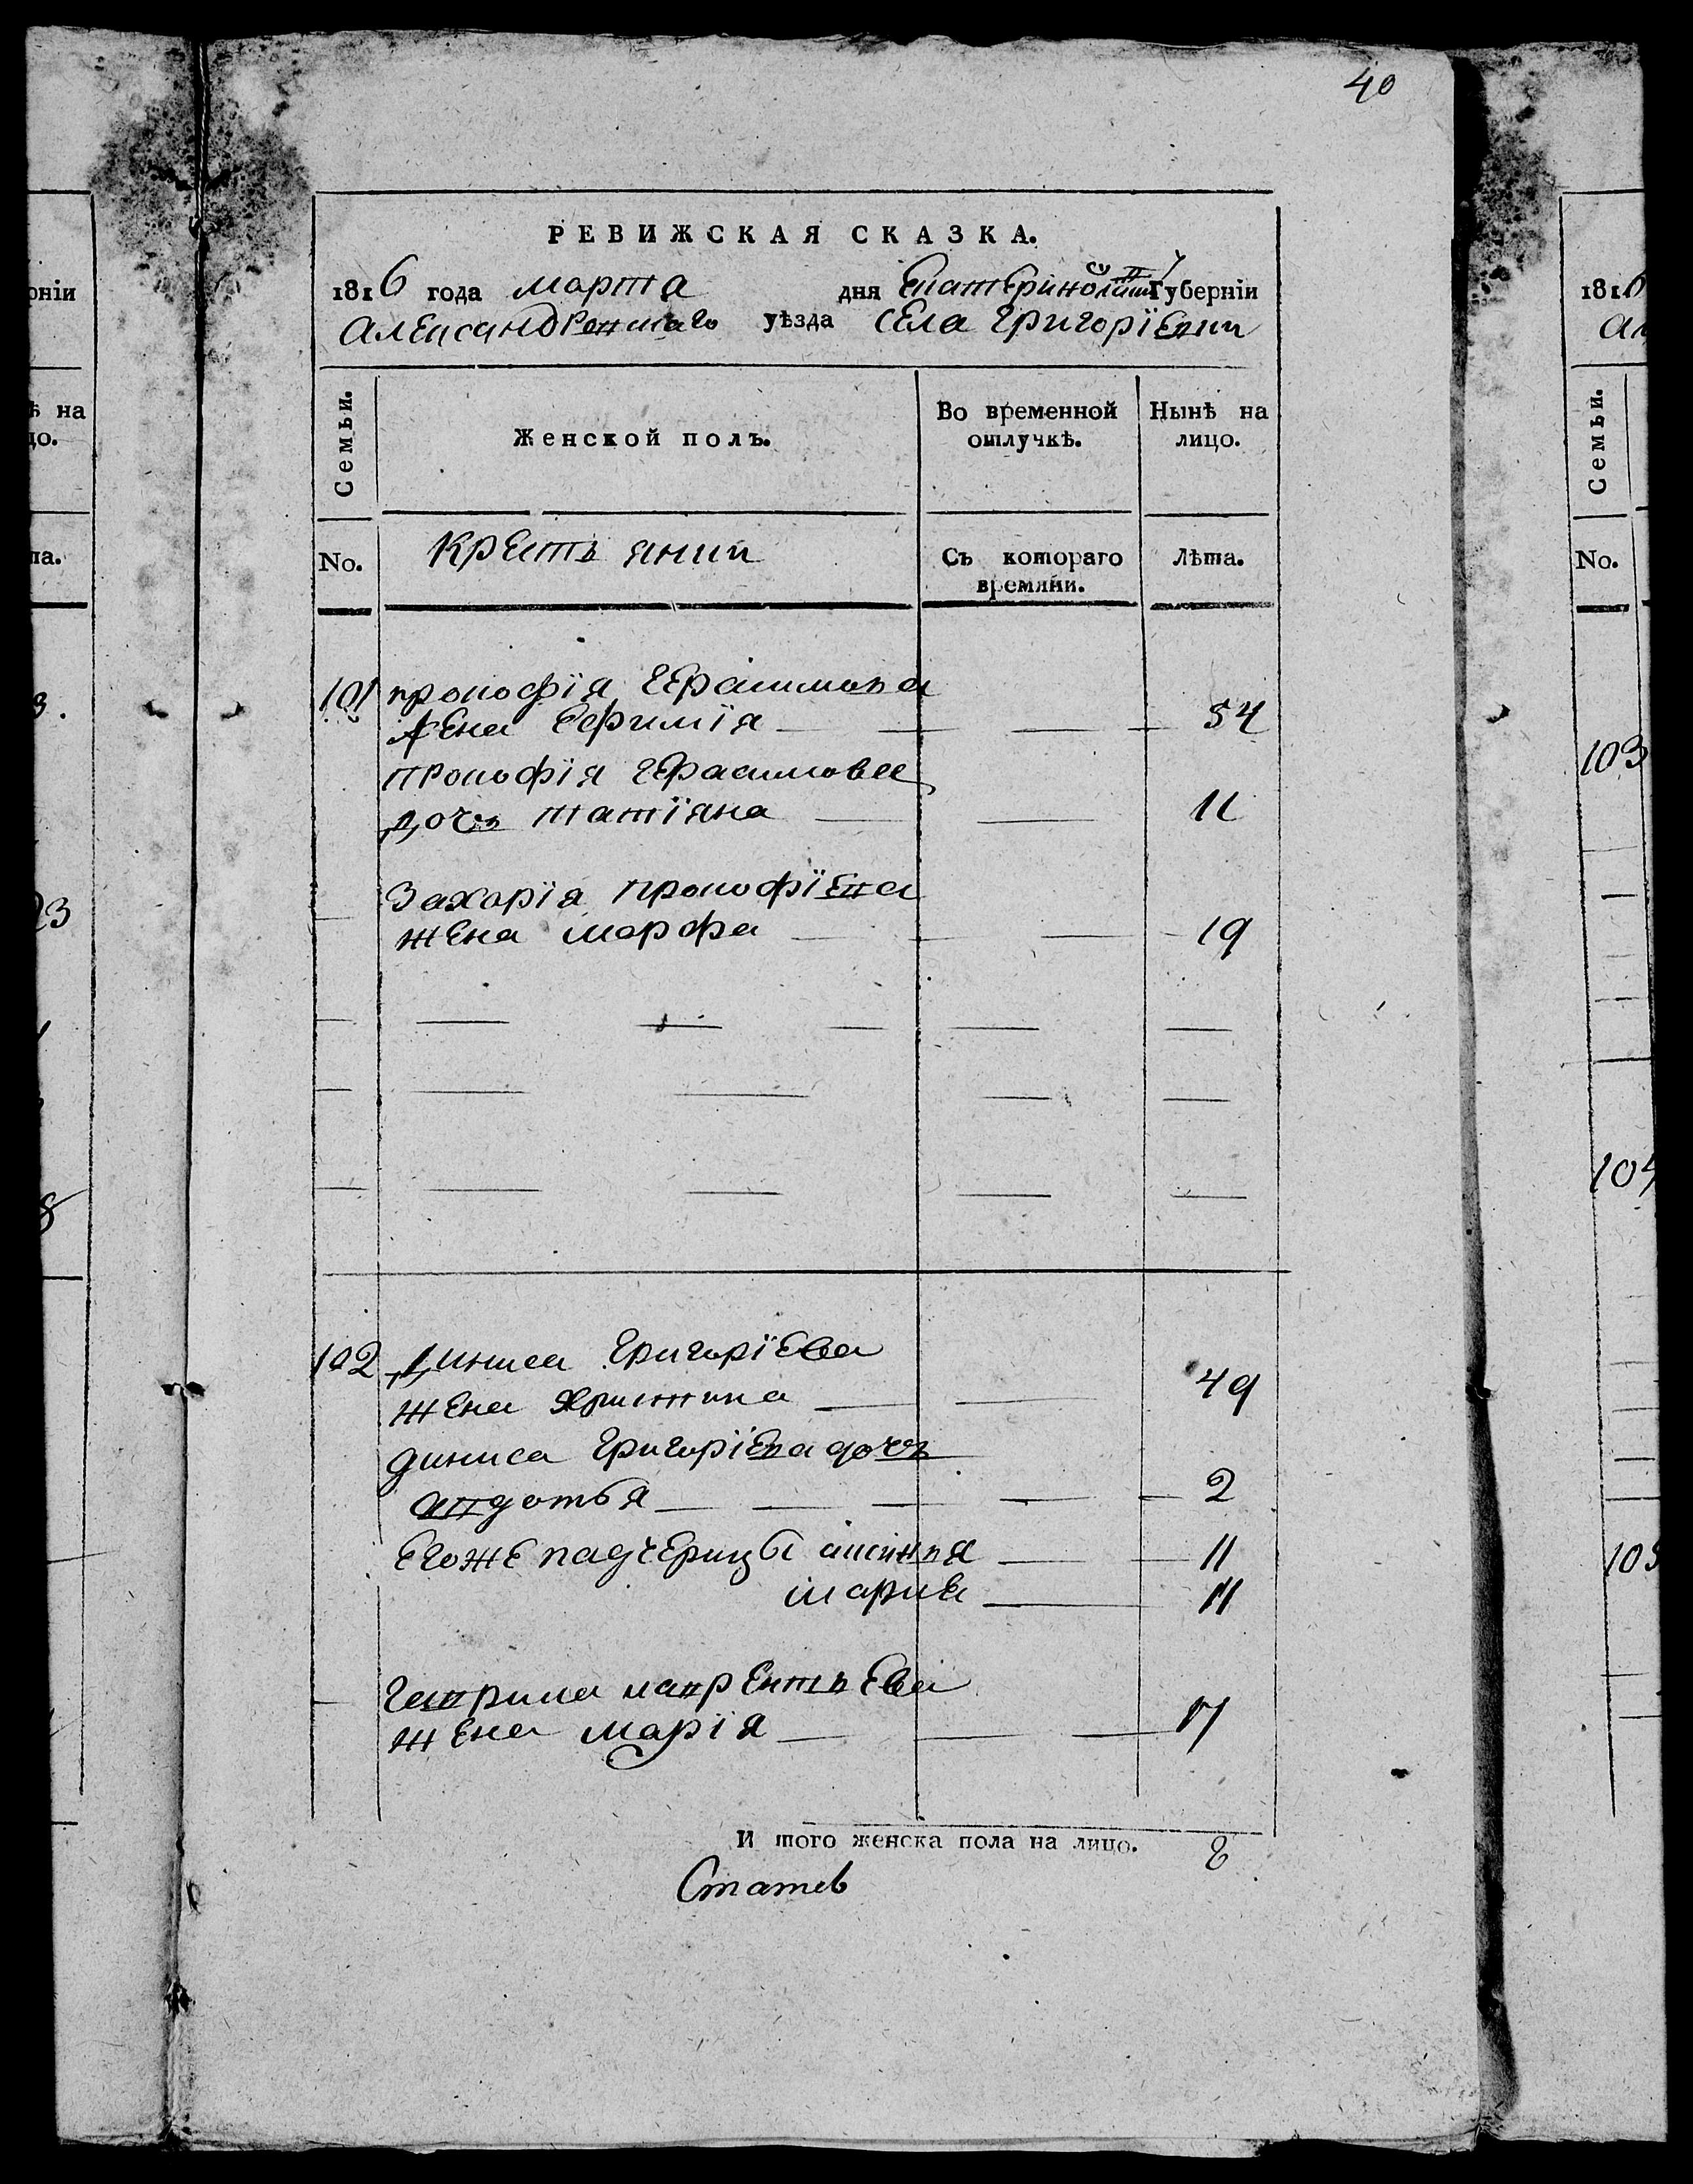 40
РЕВИЖСКАЯ СКАЗКА.
1816 года марта дня Екатеринославской Губерніи
Александровскаго уѣзда села Григорїевки
Семьи.
Женской полъ.
Во временной отлучкѣ.
Нынѣ на лицо.
No.
Крестьянии
Съ котораго времяни.
Лѣта.
101 прокофїя Герасимова
жена Ефимїя 54
прокофїя Герасимова
дочь татїяна 11
Захарїя прокофїева
жена марфа 19
102 Дениса Григорїева
жена Христина 49
дениса Григорїева дочь
авдотья 2
Егоже падчерицы 11
мария 11
Гаврила лаврентьева
жена марїя 17
И того женска пола на лицо. 8
рнїи
ѣ на
цо.
па.
3.
23
8
1816
Ал
Семьи.
No.
103
104
105